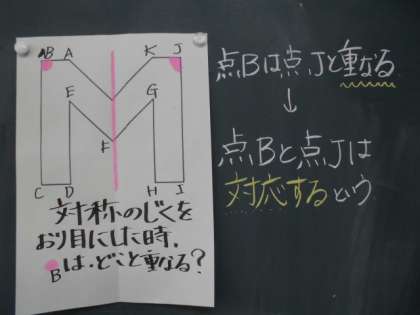 B A K J
E G
F
C D H I
対称のじくを
おり目にした時、
Bは、どこと重なる?
点Bは点Jと重なる
↓
点Bと点Jは
対応するという